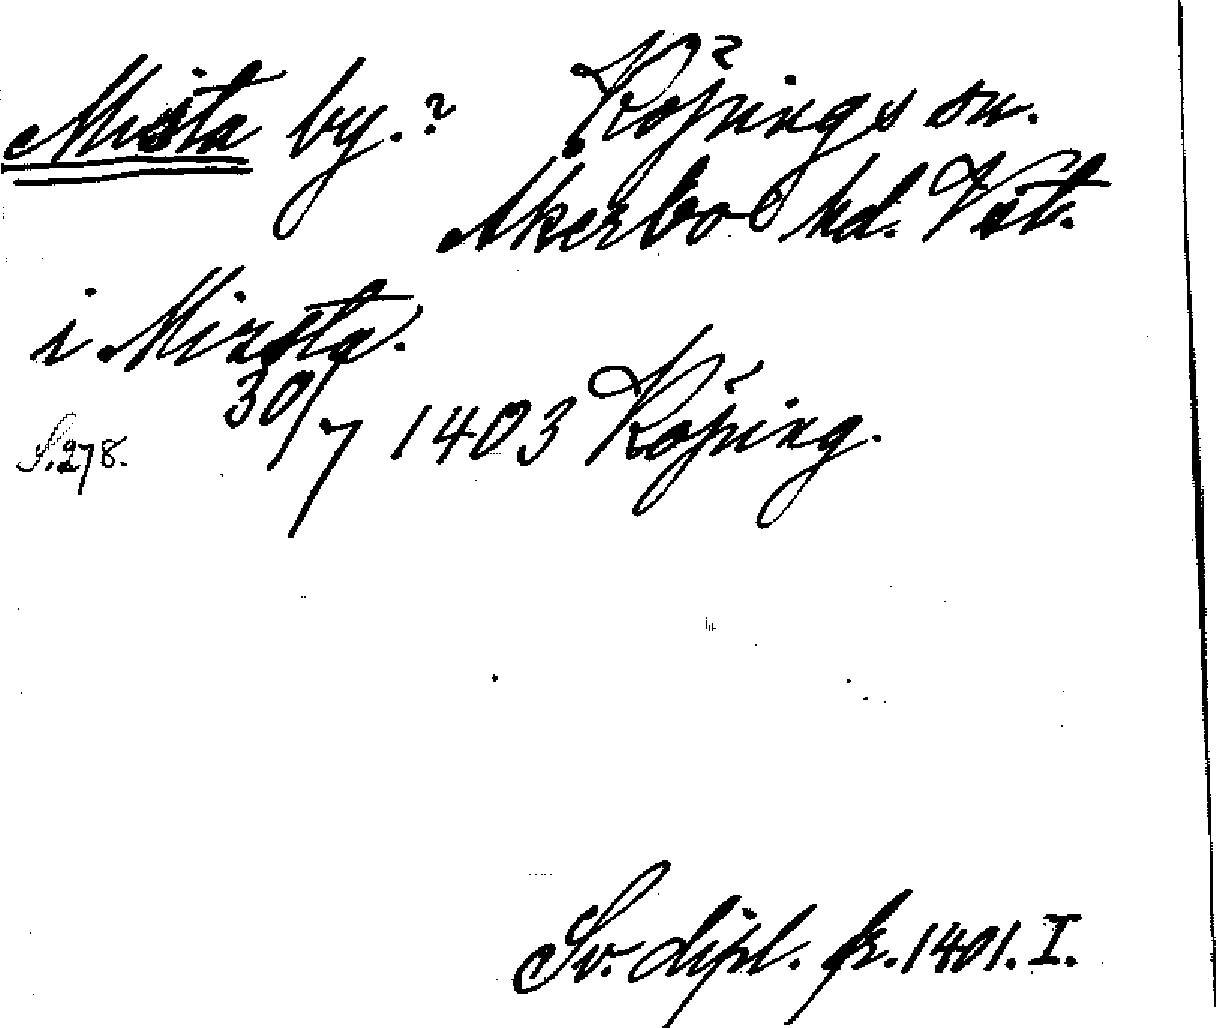 Mista by.? Köpings sn.
Åkerbo hd. Vstm.
i Mirsta.
30/7 1403 Köping.
S. 278.
Sv. dipl. fr. 1401. I.